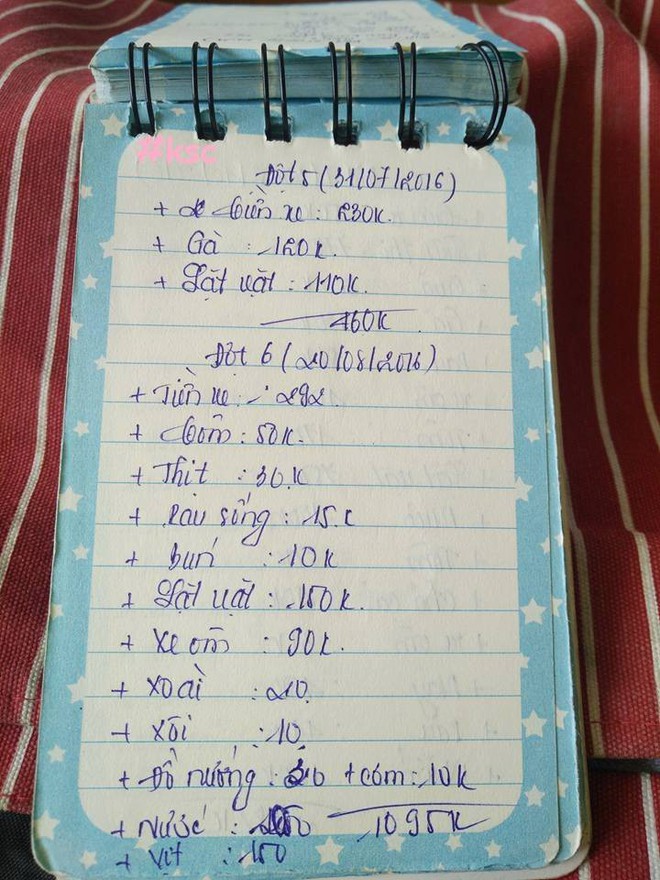 #ksc
Đợt 5 (31/07/2016)
+ Tiền xe : 230k.
+ Gà : 120k.
+ Lặt vặt : 110k.
460k
Đợt 6 (20/08/2016)
+ Tiền xe : 292
+ Cơm : 50k.
+ Thịt : 30k
+ Rau sống : 15k
+ bún : 10k
+ Lặt vặt : 150k.
+ Xe ôm : 90k.
+ Xoài : 20.
+ Xôi : 10.
+ Đồ nướng : + cơm : 10k
+ Nước : 1095k
+ Vịt : 150